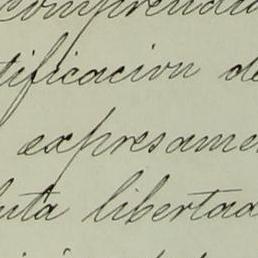 comprendid
tificacion de
expresamen
luta libertad